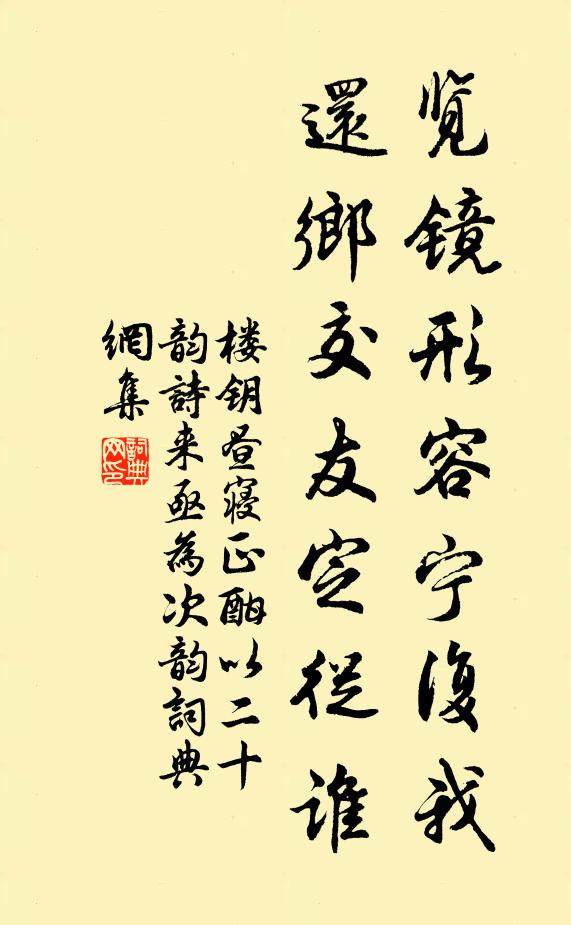 览镜形容宁复我
還鄉交友定從谁
楼钥昼寝正酣以二十
韵詩来亟為次韵詞典
網集
詞典網印